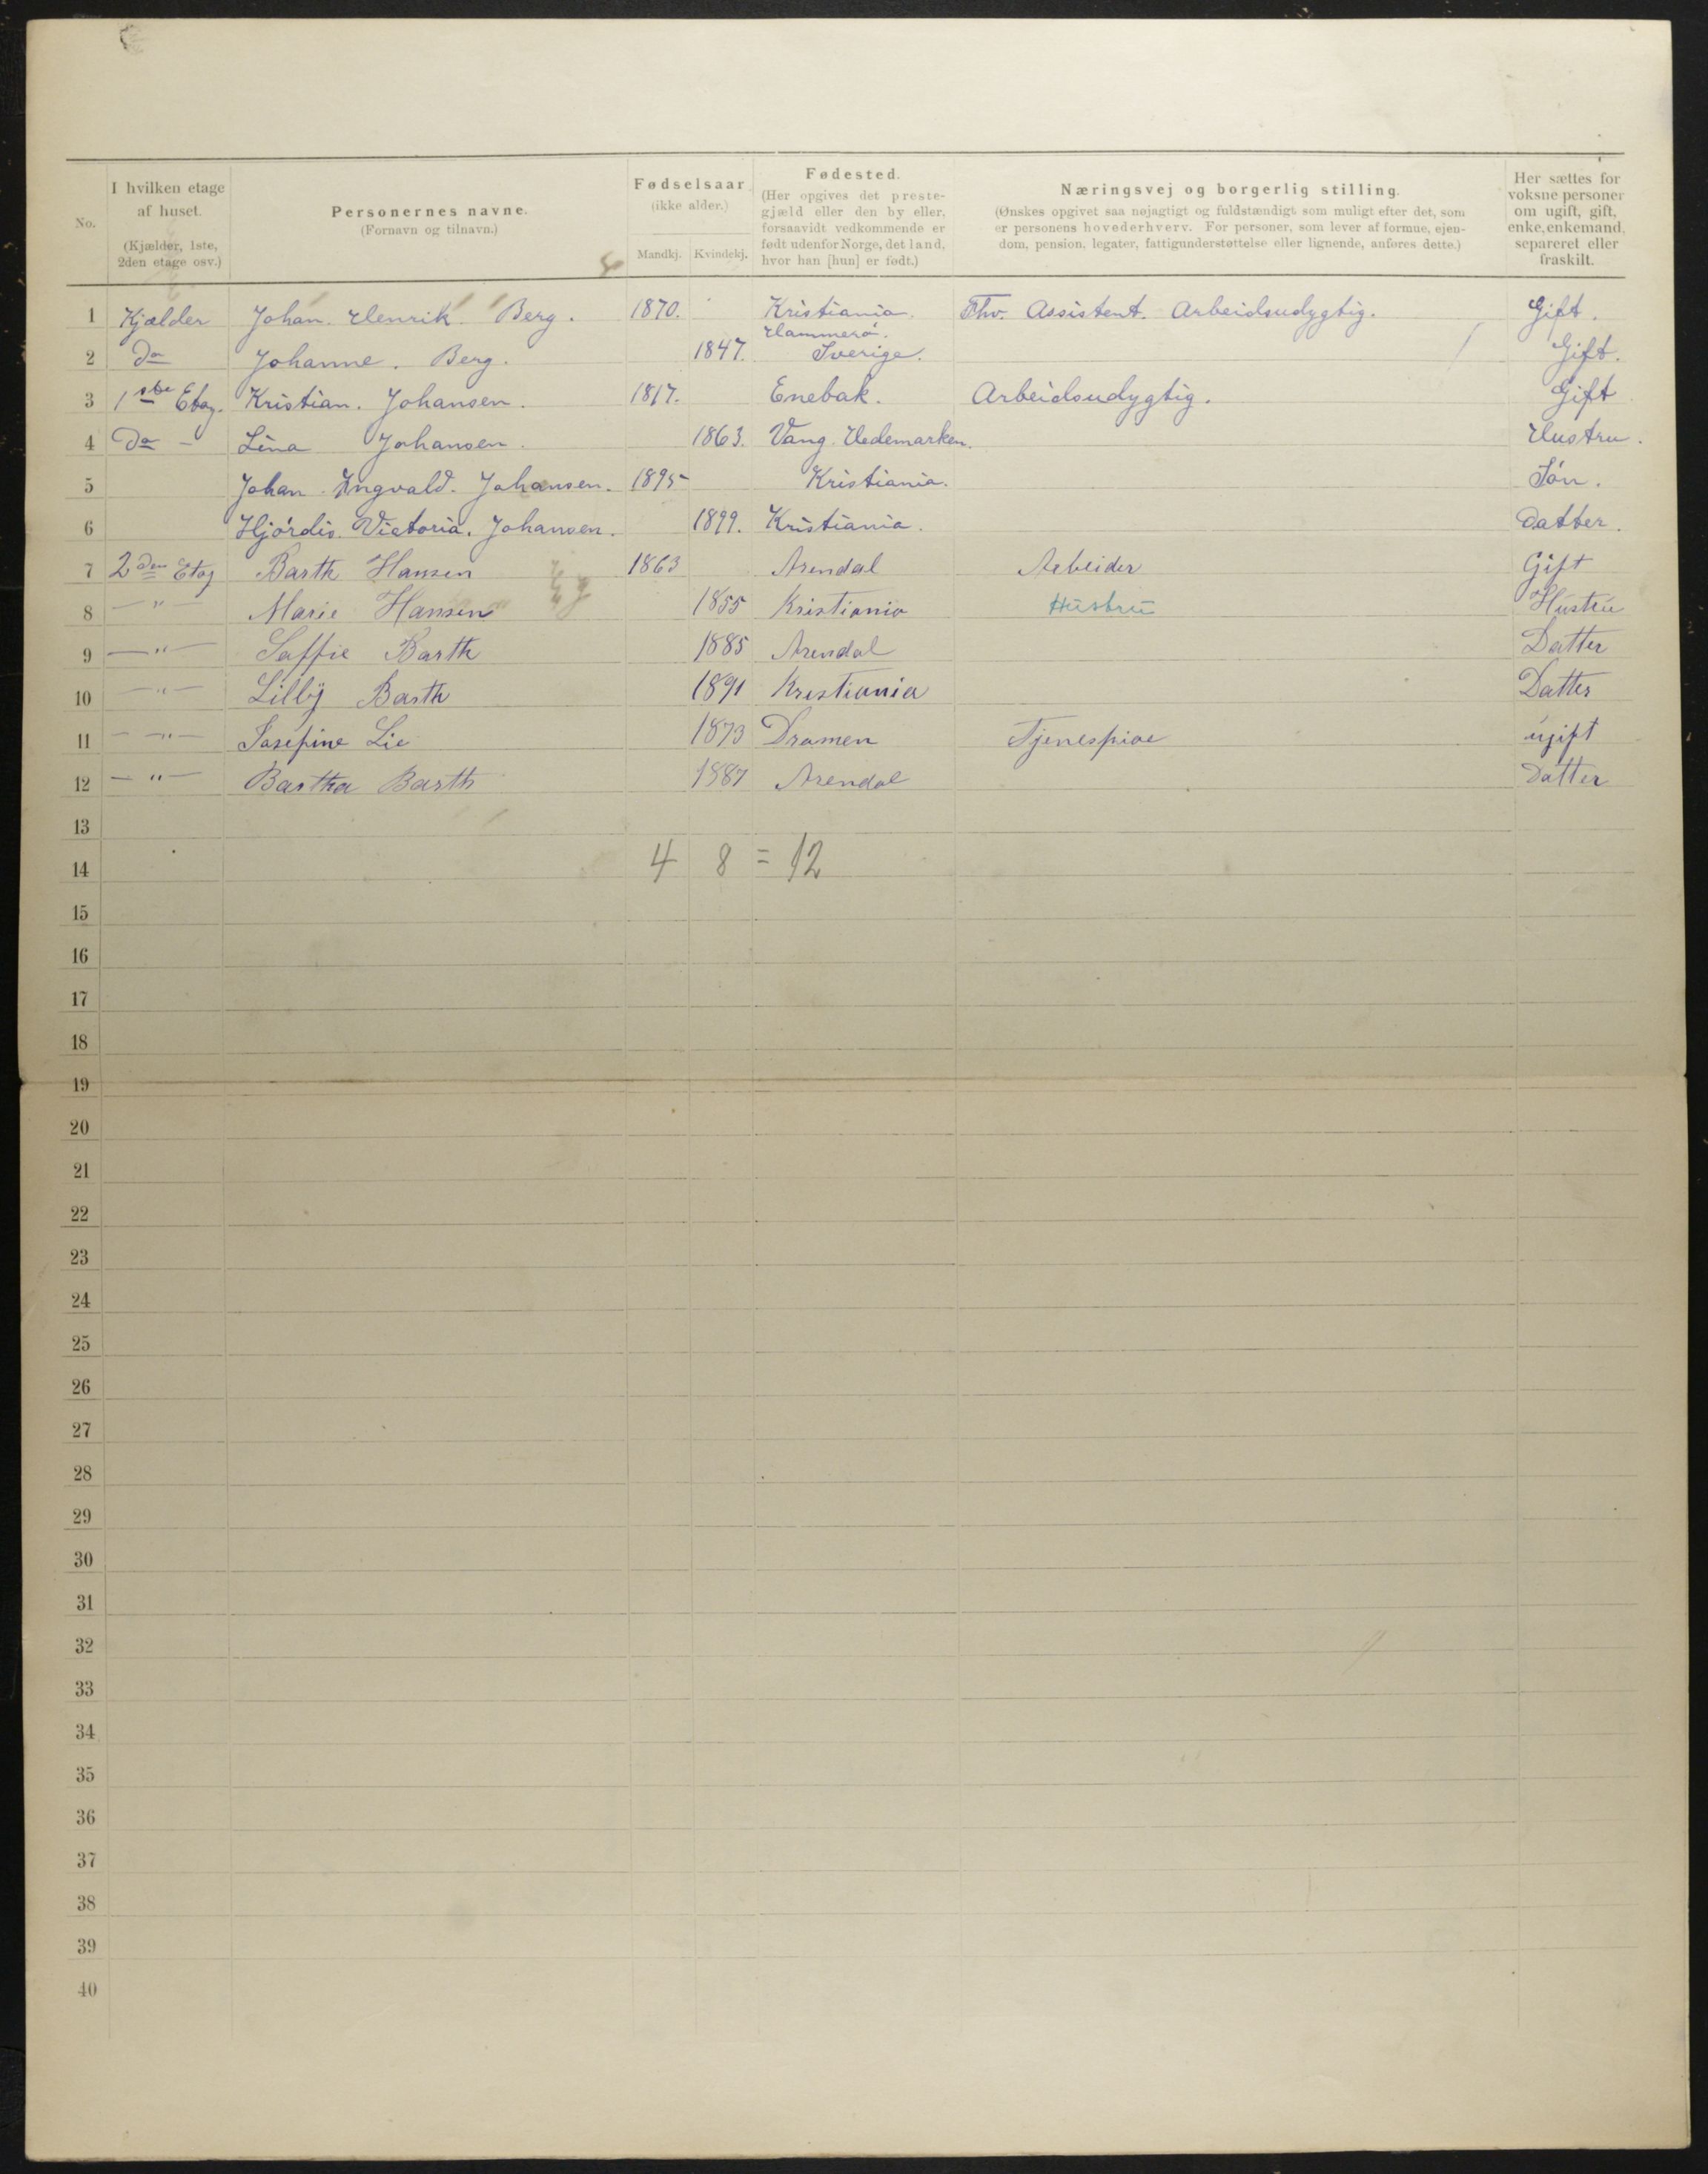 No. I hvilken etage af huset. (Kjælder, 1ste, 2den etage osv.) Personernes navne. (Fornavn og tilnavn.) Fødselsaar (ikke alder.) Mandkj. Kvindekj. Fødested. (Her opgives det prestegjæld eller den by eller, forsaavidt vedkommende er født udenfor Norge, det land, hvor han [hun] er født.) Næringsvej og borgerlig stilling. (Ønskes opgivet saa nøjagtigt og fuldstændigt som muligt efter det, som er personens hovederhverv. For personer, som lever af formue, ejendom, pension, legater, fattigunderstøttelse eller lignende, anføres dette.) Her sættes for voksne personer om ugift, gift, enke, enkemand, separeret eller fraskilt.
1 Kjælder Johan. Henrik. Berg. 1870. Kristiania. Fhv. Assistent. Arbeidsudygtig. Gift.
2 do Johanne. Berg. 1847. Hammerö. Sverige. Gift.
3 1ste Etag. Kristian. Johansen. 1817. Enebak. Arbeidsudygtig. Gift
4 do - Lina Johansen. 1863. Vang. Hedemarken. Hustru.
5 Johan. Ingvald. Johansen. 1895 Kristiania. Søn.
6 Hjördis. Victoria. Johansen. 1899. Kristiania. Datter.
7 2den Etag Barth Hansen 1863 Arendal Arbeider Gift
8 — " — Marie Hansen 1855 Kristiania Hustru Hustru
9 — " — Saffie Barth 1885 Arendal Datter
10 — " — Lilly Barth 1891 Kristiania Datter
11 — " — Josefine Lie 1873 Dramen Tjenespige ugift
12 — " — Bartha Barth 1887 Arendal Datter
13
14 4 8 = 12
15
16
17
18
19
20
21
22
23
24
25
26
27
28
29
30
31
32
33
34
35
36
37
38
39
40